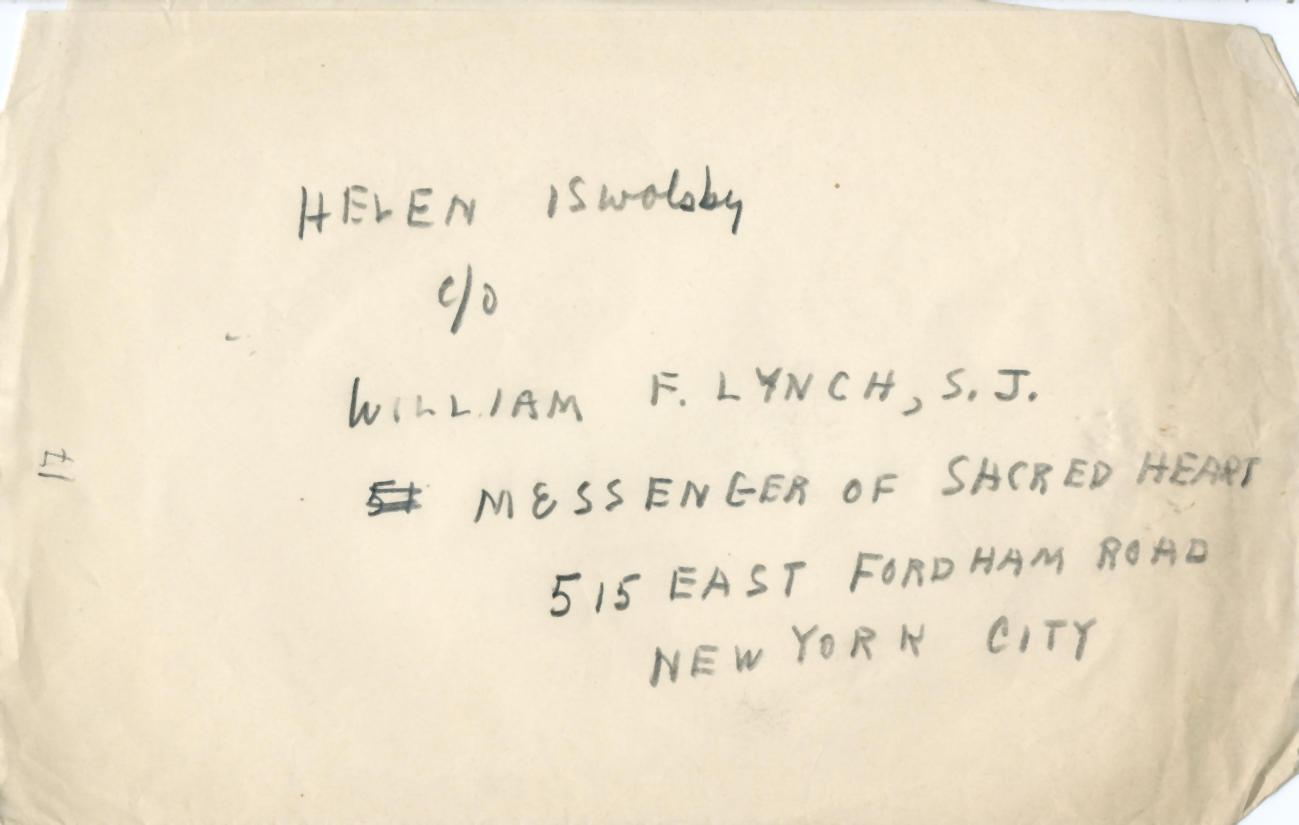 HELEN ISwolsky
c/o
WILLIAM F. LYNCH, S.J.
MESSENGER OF SACRED HEART
515 EAST FORDHAM ROAD
NEW YORK CITY